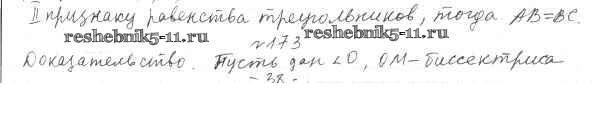 II признаку равенства треугольников, тогда AB=BC.
reshebnik5-11.ru reshebnik5-11.ru
№173
Доказательство. Пусть дан ∠O, OM-биссектриса
- 38 -